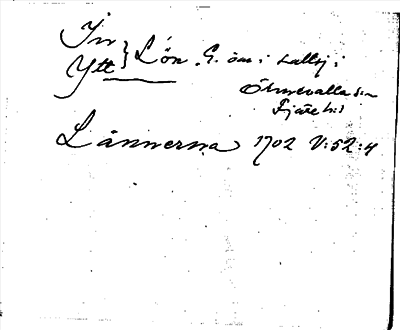 Inr
Ytt } Lön. G. öar i Kallsj i
Ölmevalla sn
Fjäre hd
Lännerna 1702 V:52:4